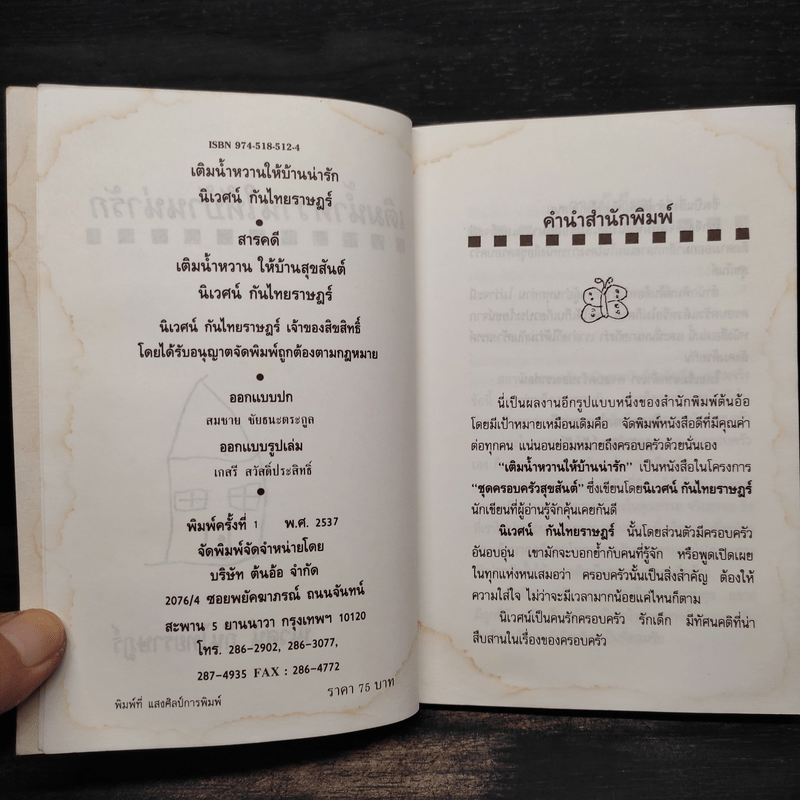 ISBN 974-518-512-4
เติมน้ำหวานให้บ้านน่ารัก
นิเวศน์ กันไทยราษฎร์
สารคดี
เติมน้ำหวาน ให้บ้านสุขสันต์
นิเวศน์ กันไทยราษฎร์
นิเวศน์ กันไทยราษฎร์ เจ้าของสิขสิทธิ์
โดยได้รับอนุญาตจัดพิมพ์ถูกต้องตามกฎหมาย
ออกแบบปก
สมชาย ชัยธนะตระกูล
ออกแบบรูปเล่ม
เกสรี สวัสดิ์ประสิทธิ์
พิมพ์ครั้งที่ 1 พ.ศ. 2537
จัดพิมพ์จัดจำหน่ายโดย
บริษัท ต้นอ้อ จำกัด
2076/4 ซอยพยัคฆาภรณ์ ถนนจันทน์
สะพาน 5 ยานนาวา กรุงเทพฯ 10120
โทร. 286-2902, 286-3077,
287-4935 FAX : 286-4772
ราคา 75 บาท
พิมพ์ที่ แสงศิลป์การพิมพ์
คำนำสำนักพิมพ์
นี่เป็นผลงานอีกรูปแบบหนึ่งของสำนักพิมพ์ต้นอ้อ
โดยมีเป้าหมายเหมือนเดิมคือ จัดพิมพ์หนังสือดีที่มีคุณค่า
ต่อทุกคน แน่นอนย่อมหมายถึงครอบครัวด้วยนั่นเอง
“เติมน้ำหวานให้บ้านน่ารัก” เป็นหนังสือในโครงการ
“ชุดครอบครัวสุขสันต์” ซึ่งเขียนโดยนิเวศน์ กันไทยราษฎร์
นักเขียนที่ผู้อ่านรู้จักคุ้นเคยกันดี
นิเวศน์ กันไทยราษฎร์ นั้นโดยส่วนตัวมีครอบครัว
อันอบอุ่น เขามักจะบอกย้ำกับคนที่รู้จัก หรือพูดเปิดเผย
ในทุกแห่งหนเสมอว่า ครอบครัวนั้นเป็นสิ่งสำคัญ ต้องให้
ความใส่ใจ ไม่ว่าจะมีเวลามากน้อยแค่ไหนก็ตาม
นิเวศน์เป็นคนรักครอบครัว รักเด็ก มีทัศนคติที่น่า
สืบสานในเรื่องของครอบครัว